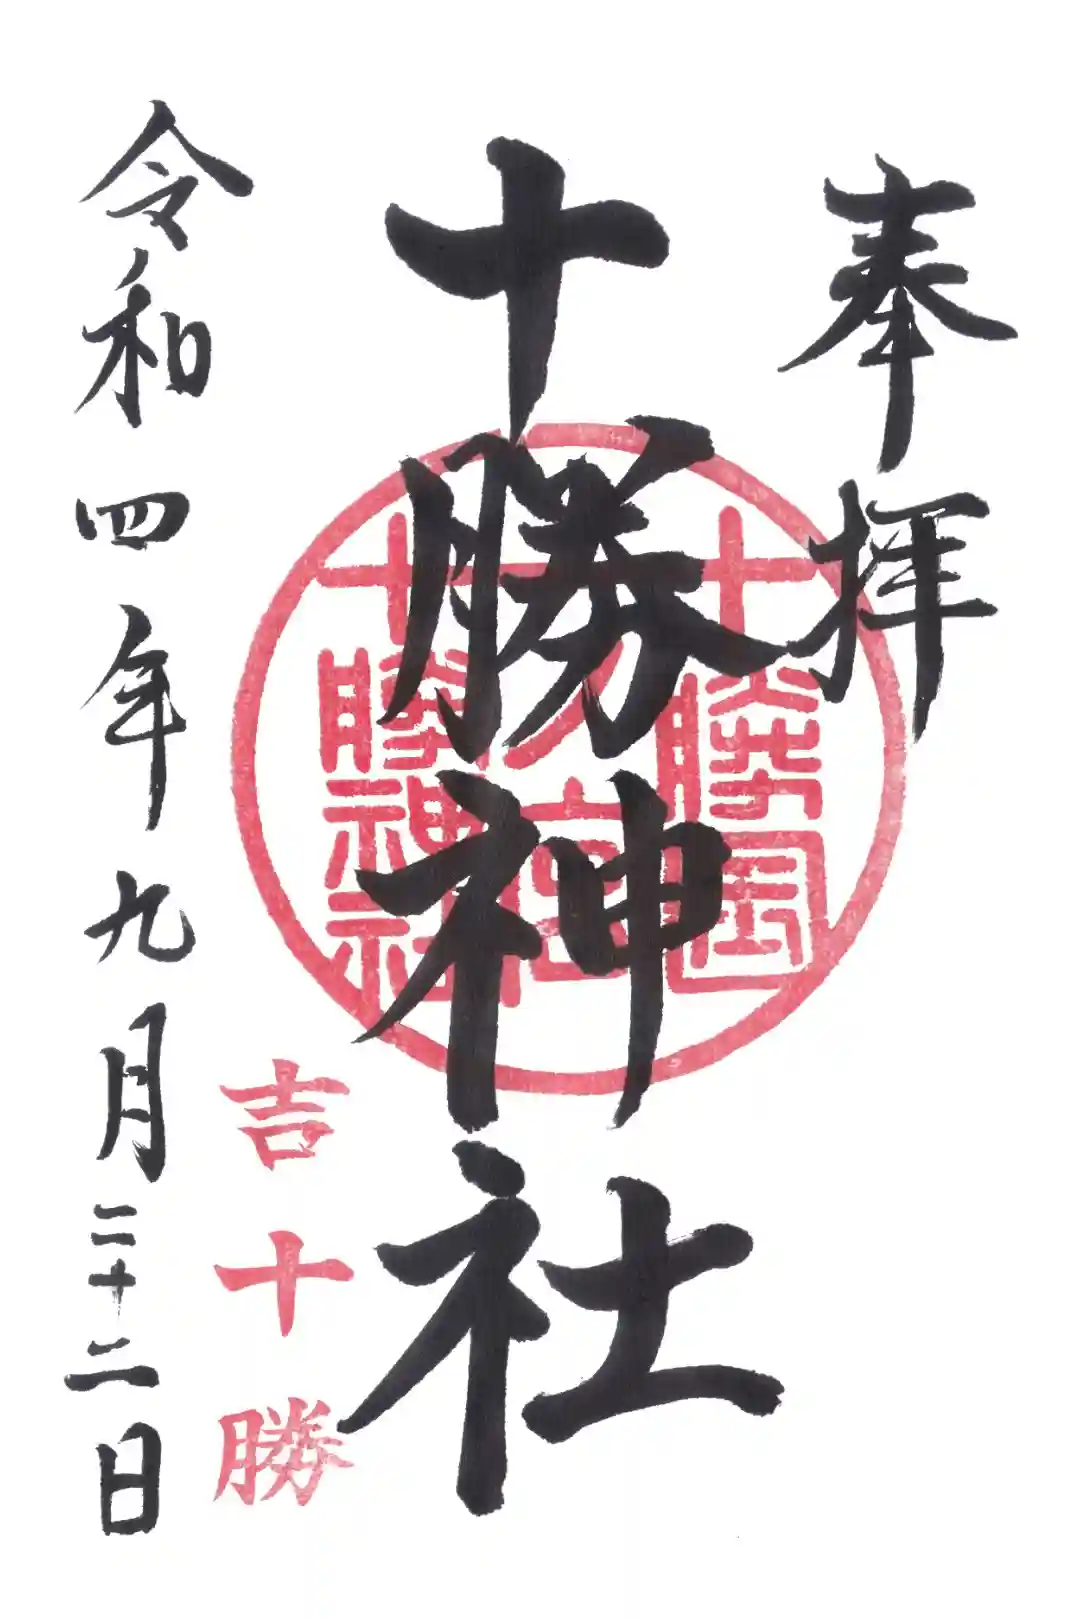 奉拝
十勝國
一之宮
十勝神社
十勝神社
吉十勝
令和四年九月二十二日